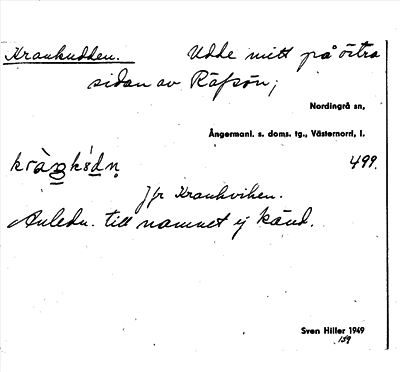 Krankudden. Udde mitt på östra
sidan av Räfsön;
Nordingrå sn,
Ångermanl. s. doms. tg., Västernorrl. l.
499.
Jfr Krankviken.
Anledn. till namnet ej känd.
Sven Hiller 1949
159